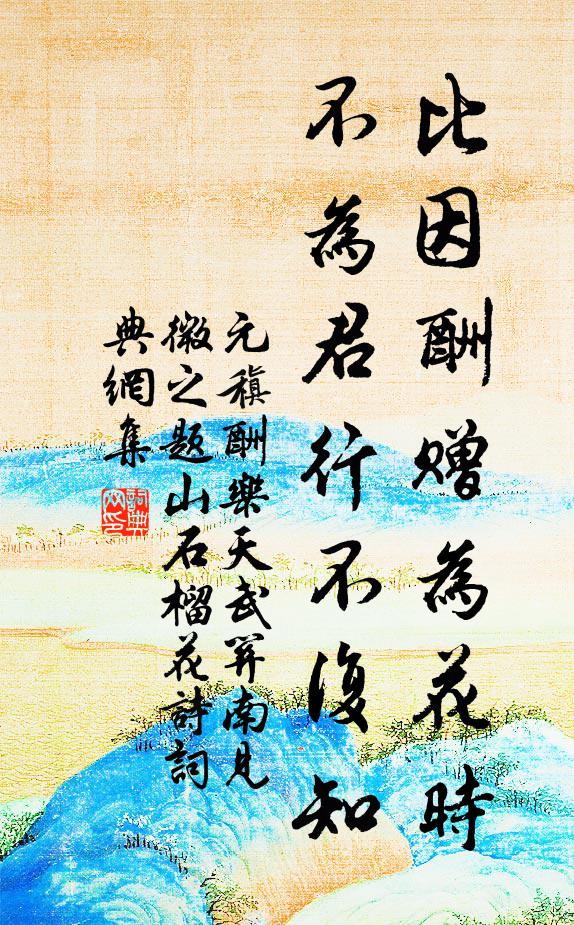 比因酬贈為花時
不為君行不復知
元稹酬樂天武關南見
微之題山石榴花詩詞
典網集